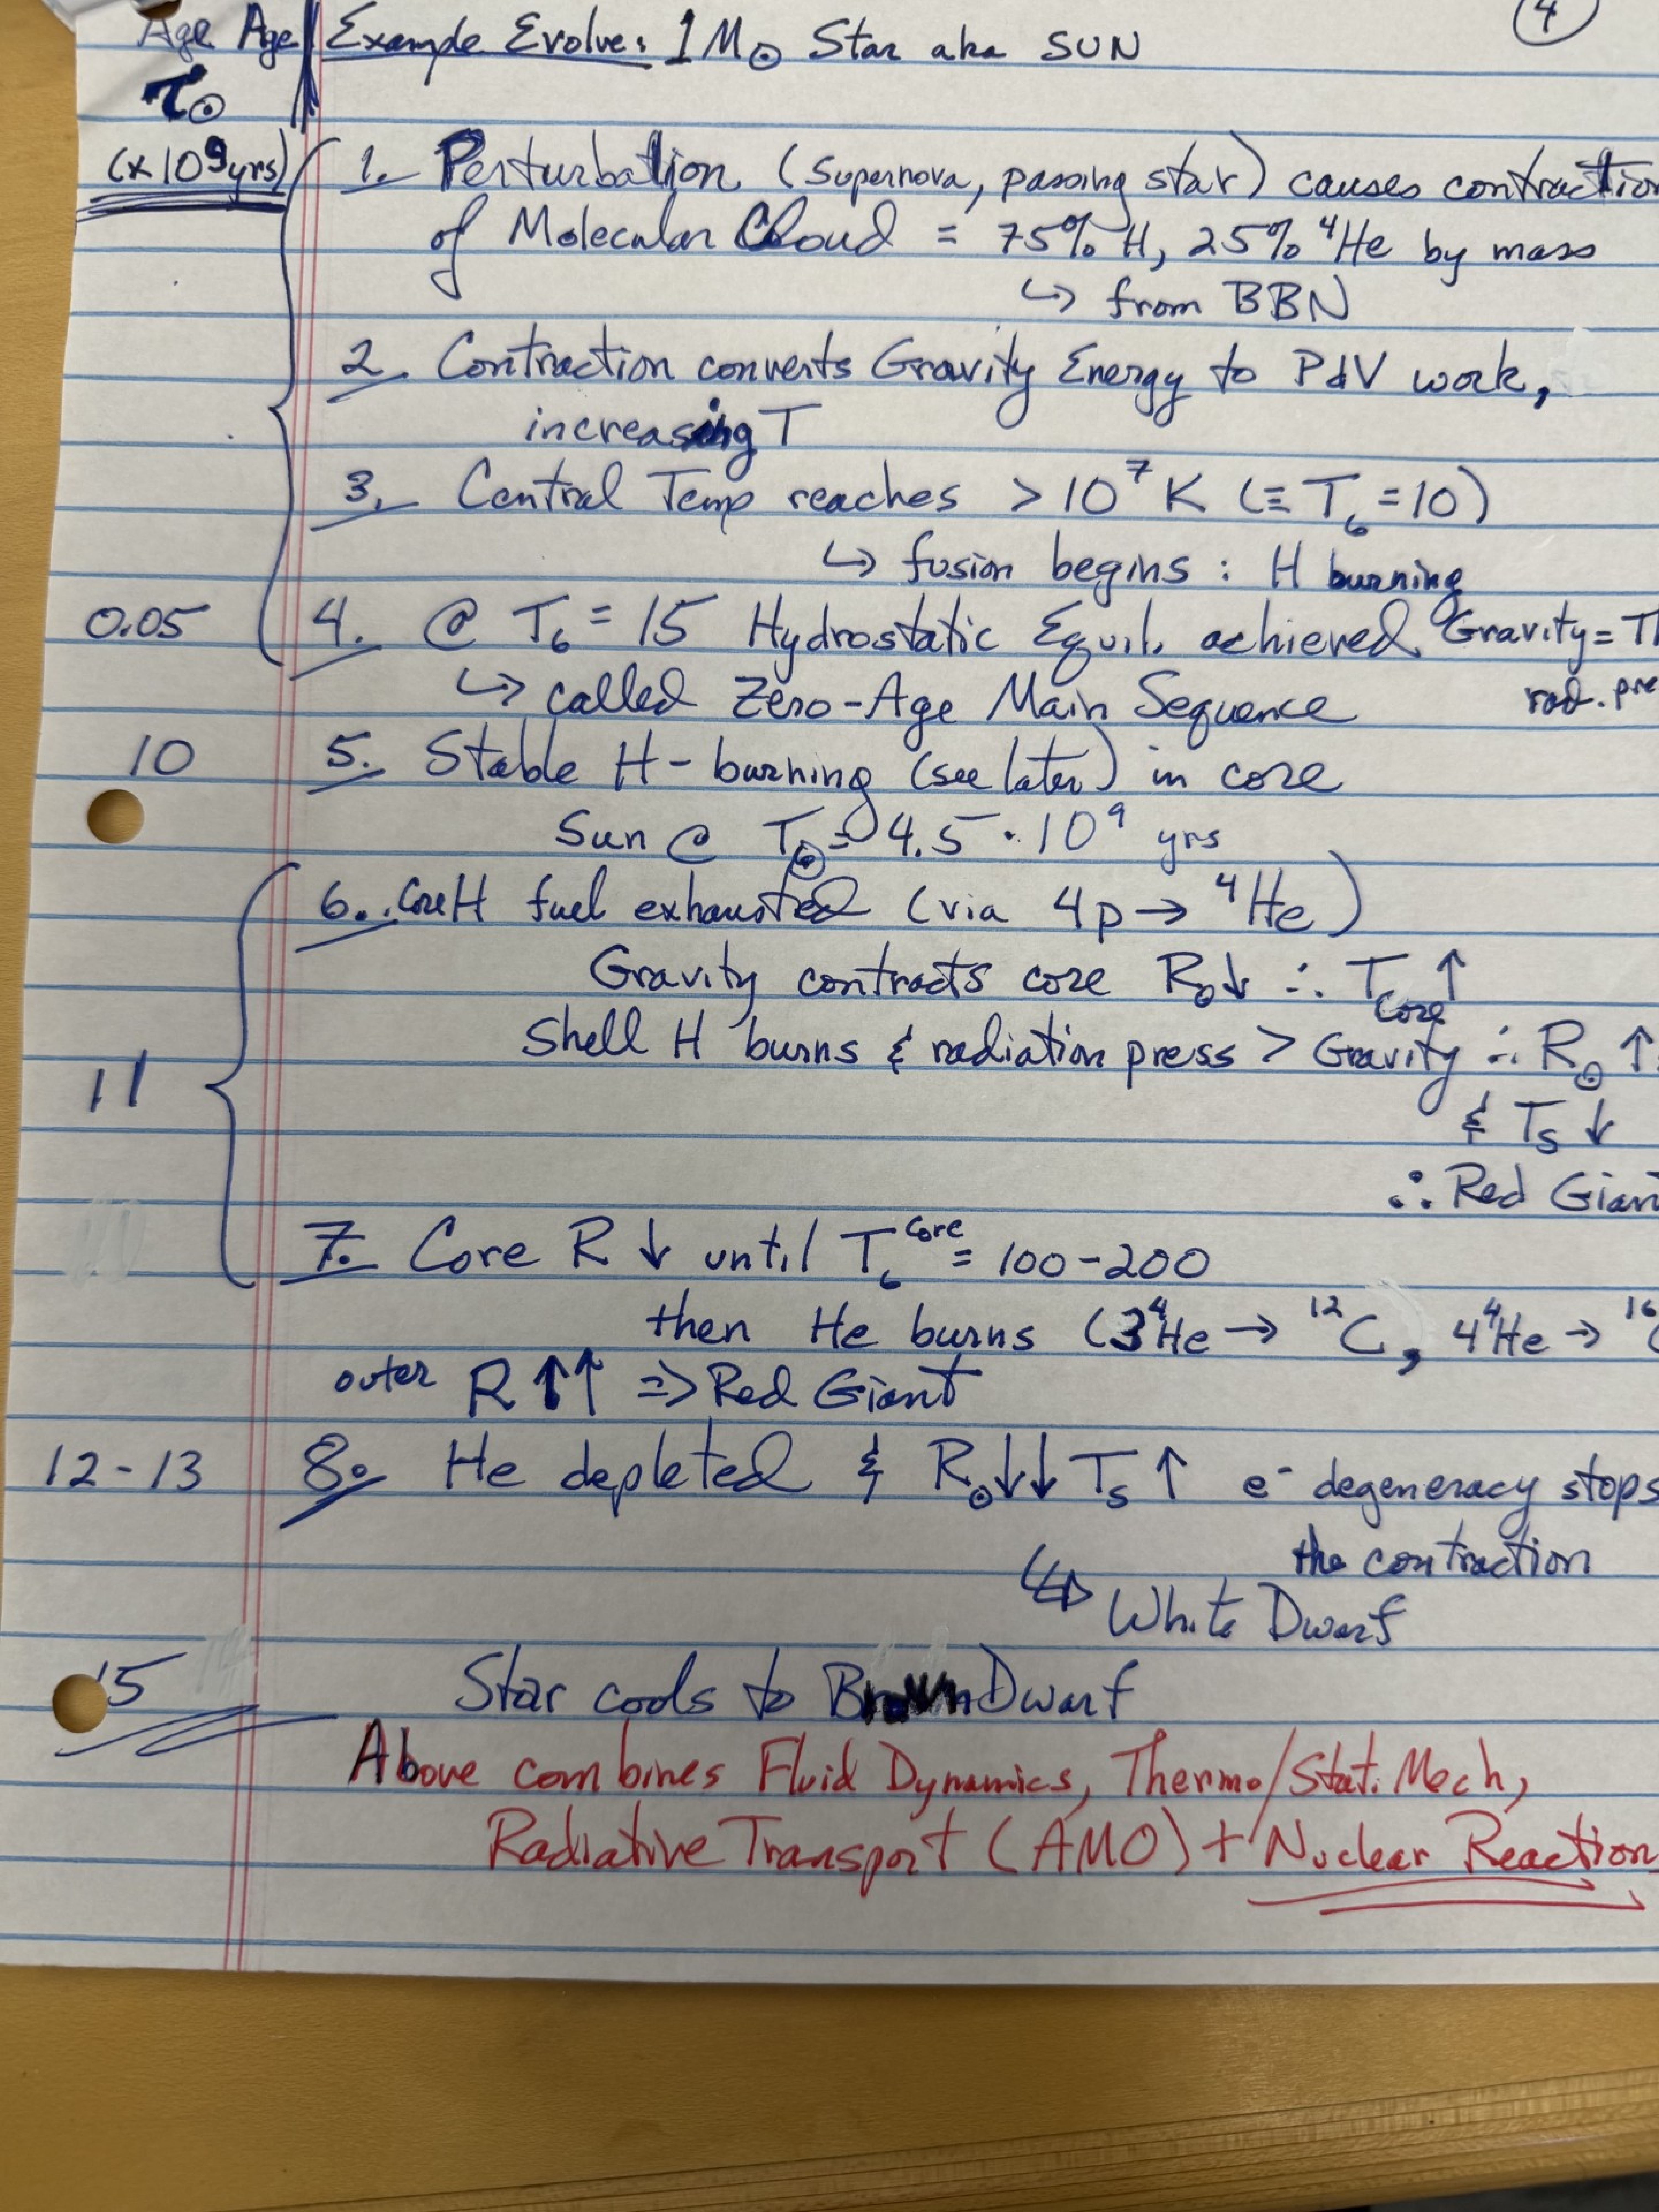 4
Age Age Example Evolve: 1 M☉ Star aka SUN
τ☉
(x 10⁹ yrs) 1. Perturbation (supernova, passing star) causes contraction
of Molecular Cloud = 75% H, 25% ⁴He by mass
↪ from BBN
2. Contraction converts Gravity Energy to PdV work,
increasing T
3. Central Temp reaches > 10⁷ K (≡ T₆ = 10)
↪ fusion begins : H burning
0.05 4. @ T₆ = 15 Hydrostatic Equil. achieved Gravity =
↪ called Zero-Age Main Sequence rad. pre
10 5. Stable H-burning (see later) in core
Sun @ τ☉ = 4.5 · 10⁹ yrs
6. Core H fuel exhausted (via 4p → ⁴He)
Gravity contracts core R☉↓ ∴ T core ↑
11 Shell H burns & radiation press > Gravity ∴ R☉ ↑
& Ts ↓
∴ Red Giant
7. Core R ↓ until T₆ core = 100-200
then He burns (3⁴He → ¹²C, 4⁴He → ¹⁶
outer R ↑↑ ⇒ Red Giant
12-13 8. He depleted & R☉↓↓ Ts ↑ e⁻ degeneracy stops
the contraction
↪ White Dwarf
15 Star cools to Brown Dwarf
Above combines Fluid Dynamics, Thermo/Stat. Mech,
Radiative Transport (AMO) + Nuclear Reaction